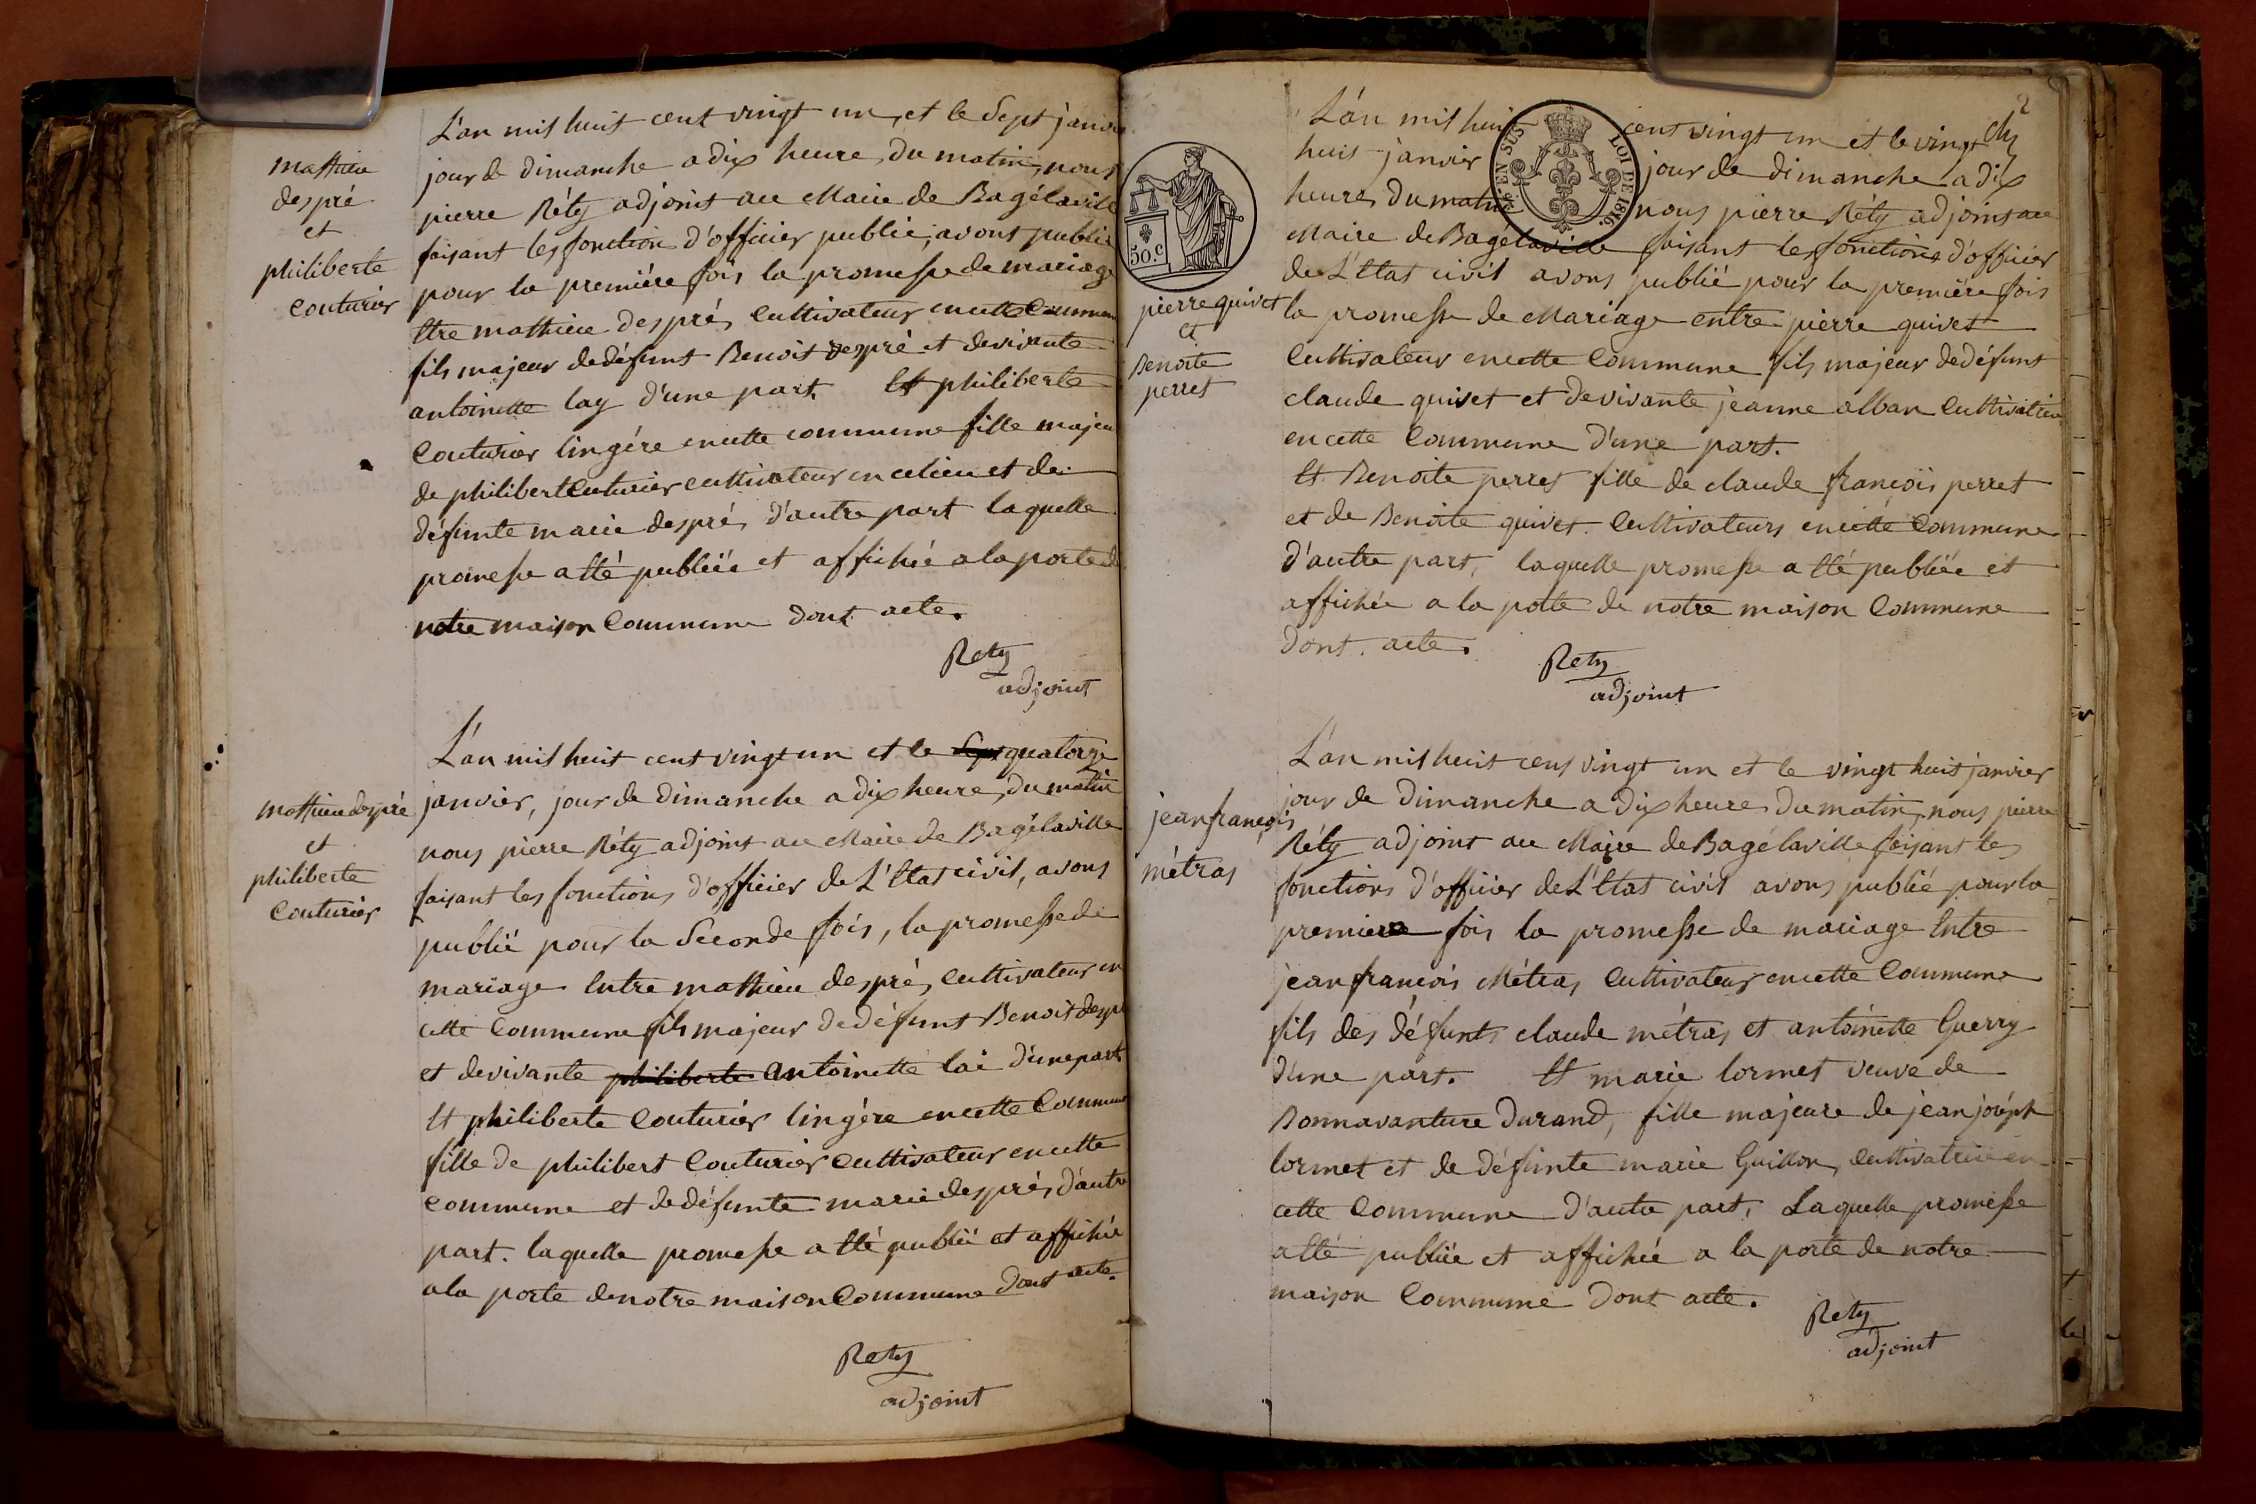 L'an mil huit cent vingt un, et le Sept janvier
mathieu
despré
et
philiberte
couturier
jour de dimanche a dix heure, du matin, nous
pierre Réty adjoint au Maire de Bagélaville
faisant les fonction d'officier public, avons publié
pour la premiére fois la promesse de mariage
Etre mathieu després, cultivateur en cette Commune
fils majeur de défunt Benoit despré et de vivante
antoinette lay d'une part. Et philiberte
Couturier lingére en cette commune fille majeur
de philibert Couturier cultivateur en ce lieu et de
défunte marie després, d'autre part laquelle
promesse a été publiée et affichée a la porte de
notre maison Commune dont acte.
Rety
adjoint
L'an mil huit cent vingt un et le Sept quatorze
mathieu despré
et
philiberte
Couturier
janvier, jour de dimanche a dix heure, du matin
nous pierre Réty adjoint au Maire de Bagélaville
faisant les fonctions d'officier de L'Etat civil, avons
publié pour la Seconde fois, la promesse de
mariage Entre mathieu després, cultivateur en
cette Commune fils majeur de défunt Benoit despré
et de vivante philiberte antoinette lai d'une part
Et philiberte Couturier lingére en cette Commune
fille de philibert Couturier cultivateur en cette
commune et de défunte marie després, d'autre
part. laquelle promesse a été publié et affichée
a la porte de notre maison Commune dont acte.
Rety
adjoint
2
EN SUS
LOI DE 1816.
50.c
L'an mil huit cent vingt un et le vingt
huit janvier jour de dimanche a dix
heures du matin nous pierre Réty adjoint au
Maire de Bagélaville faisant les fonctions d'officier
de L'Etat civil avons publié pour la premiére fois
pierre quivet
et
Benoite
perret
la promesse de Mariage entre pierre quivet
Cultivateur en cette Commune fils majeur de défunt
claude quivet et de vivante jeanne alban Cultivatrice
en cette Commune d'une part.
Et Benoite perret fille de claude françois perret
et de Benoite quivet Cultivateurs en cette Commune
d'autre part, laquelle promesse a été publiée et
affichée a la potte de notre maison Commune
dont acte.
Rety
adjoint
L'an mil huit cent vingt un et le vingt huit janvier
jean françois
métras
jour de dimanche a dix heures du matin, nous pierre
Réty adjoint au Maire de Bagélaville faisant les
fonctions d'officier de L'Etat civil avons publié pour la
premiere fois la promesse de mariage Entre
jean françois Métras, Cultivateur en cette Commune
fils des défunts claude métras et antoinette Guerry
d'une part. Et marie lormet veuve de
Bonnavanture Durand, fille majeure de jean joséph
lormet et de défunte marie Guillon, cultivatrice en
cette Commune d'autre part, Laquelle promesse
a été publiée et affichée a la porte de notre
maison Commune dont acte.
Rety
adjoint